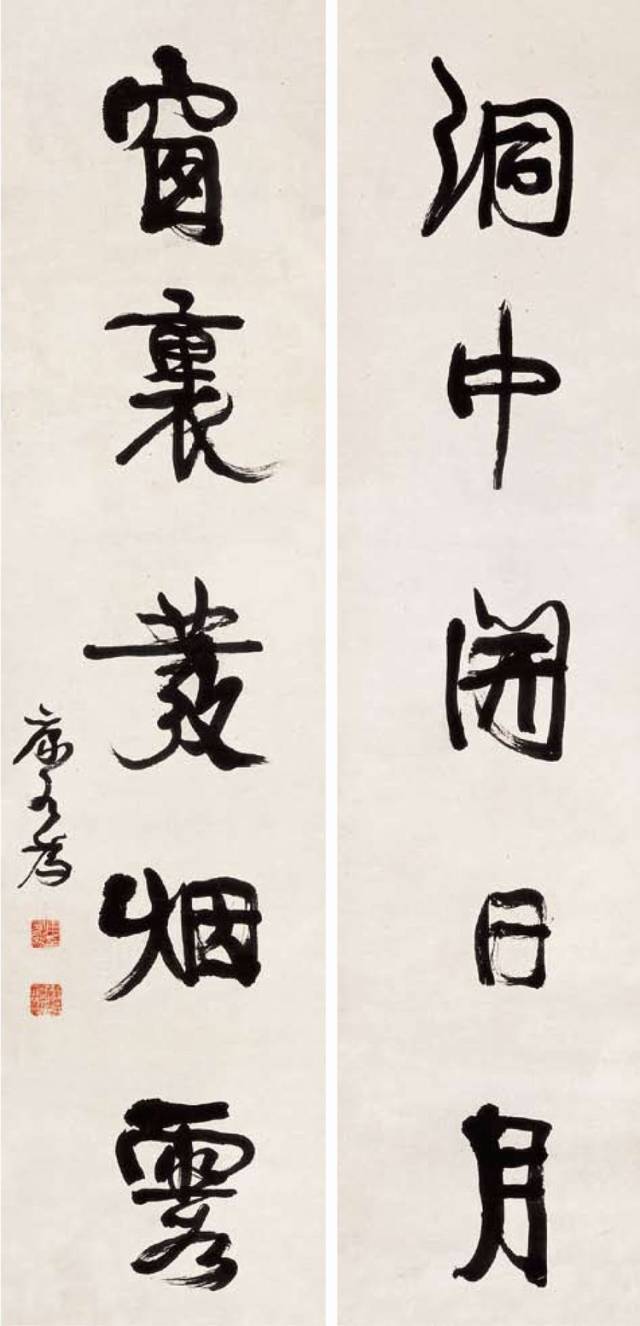 洞中開日月
窗裏發烟霧
康有為